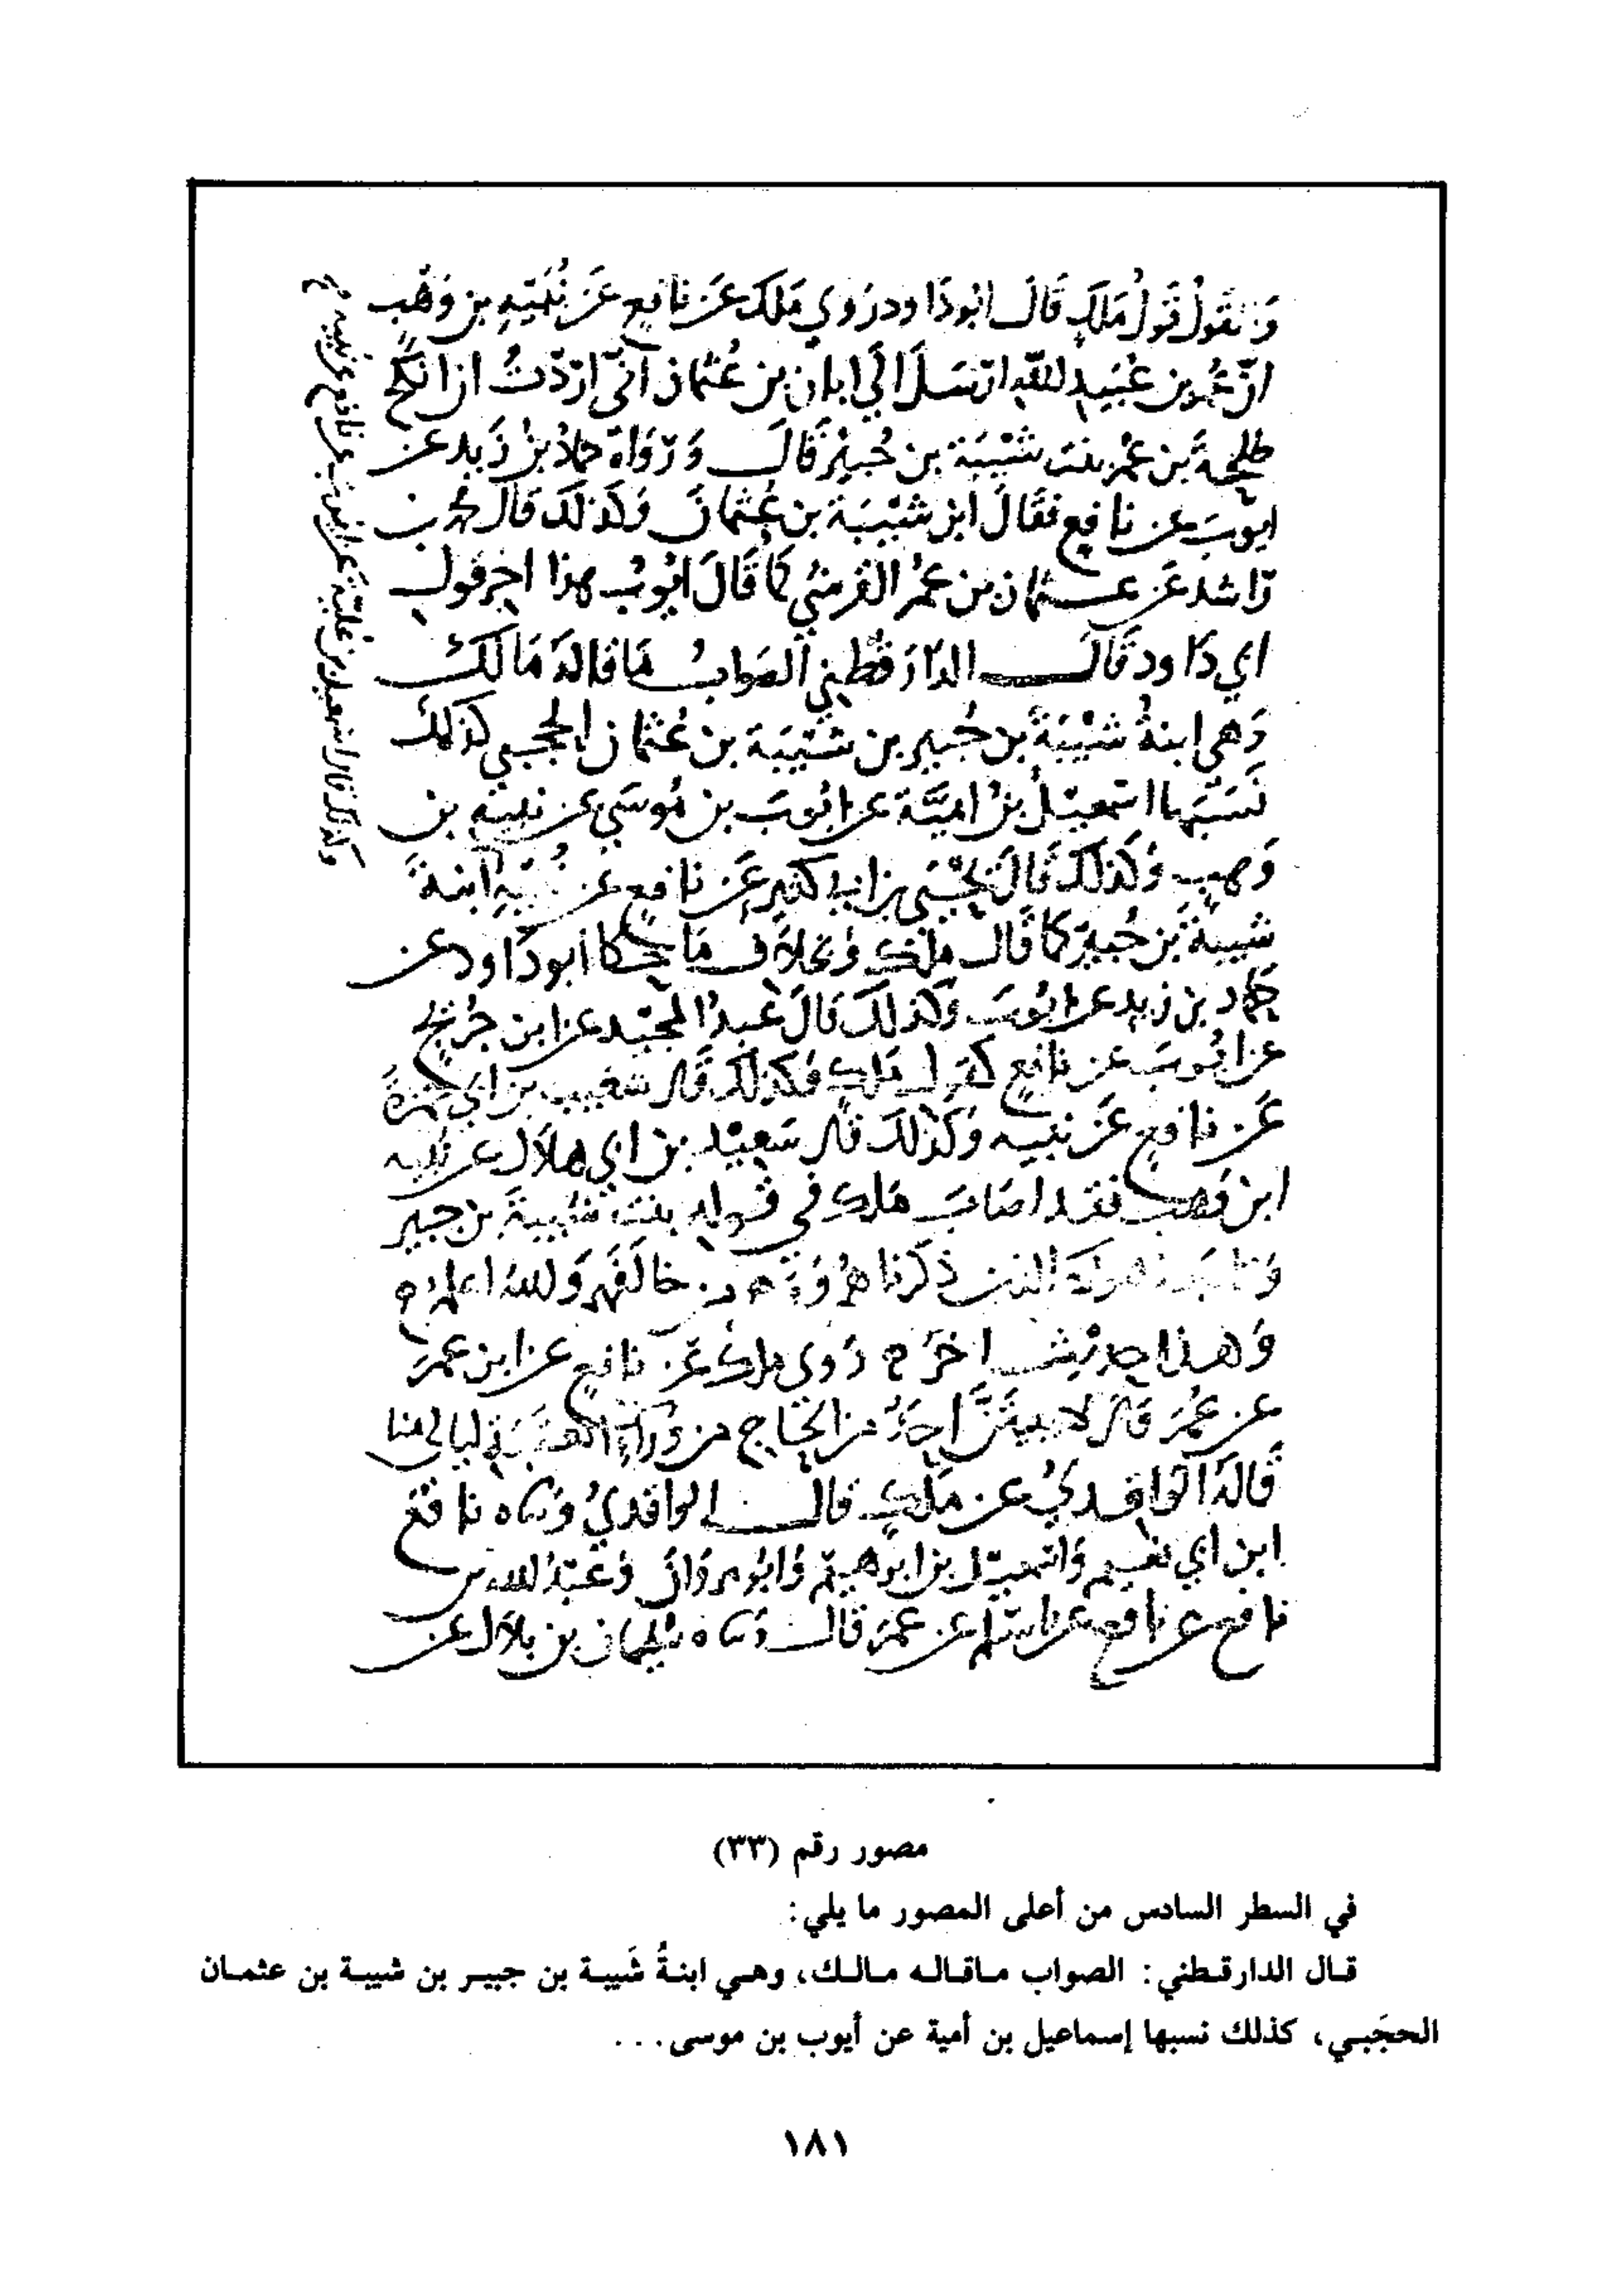 قول ملك قال ابو داود روي ملك عن نافع عن نبيه بن وهب
ان عمر بن عبيد الله ارسل الي ابان بن عثمان اني اردت ان انكح
طلحة بن عمر بنت شيبة بن جبير قال ورواه حماد بن زيد عن
ايوب عن نافع فقال ابن شيبة بن عثمان وكذلك قال محمد بن
راشد عن عثمان بن عمر القرشي كما قال ايوب هذا اخر قول
ابي داود قال الدارقطني الصواب ما قاله مالك
وهي ابنة شيبة بن جبير بن شيبة بن عثمان الحجبي كذلك
نسبها اسمعيل بن امية عن ايوب بن موسي عن نبيه بن
وهب وكذلك قال يحيي بن ابي كثير عن نافع عن نبيه ابنة
شيبة بن جبير كما قال ملك وبخلاف ما حكا ابو داود عن
حماد بن زيد عن ايوب وكذلك قال عبد المجيد عن ابن جريج
عن ايوب عن نافع كقول ملك وكذلك قال شعيب بن ابي حمزة
عن نافع عن نبيه وكذلك قال سعيد بن ابي هلال عن نبيه
ابن وهب فقد اصاب ملك في قوله بنت شيبة بن جبير
ذكرناهم من خالفهم والله اعلم
وهذا حديث اخر روي ملك عن نافع عن ابن عمر
عن عمر قال لا يبيتن احد من الحاج من وراء العقبة ليالي منا
قاله الواقدي عن ملك قال الواقدي ورواه نافع
ابن ابي نعيم واسمعيل بن ابرهيم وابو مروان وعبد الله بن
نافع عن نافع عن اسلم عن عمر قال ورواه سليمان بن بلال عن
وكذلك قال اسمعيل بن علية عن ايوب عن نافع عن نبيه
مصور رقم (٣٣)
في السطر السادس من أعلى المصور ما يلي:
قال الدارقطني: الصواب ماقاله مالك، وهي ابنةُ شَيبة بن جبير بن شيبة بن عثمان
الحجَبي، كذلك نسبها إسماعيل بن أمية عن أيوب بن موسى...
١٨١